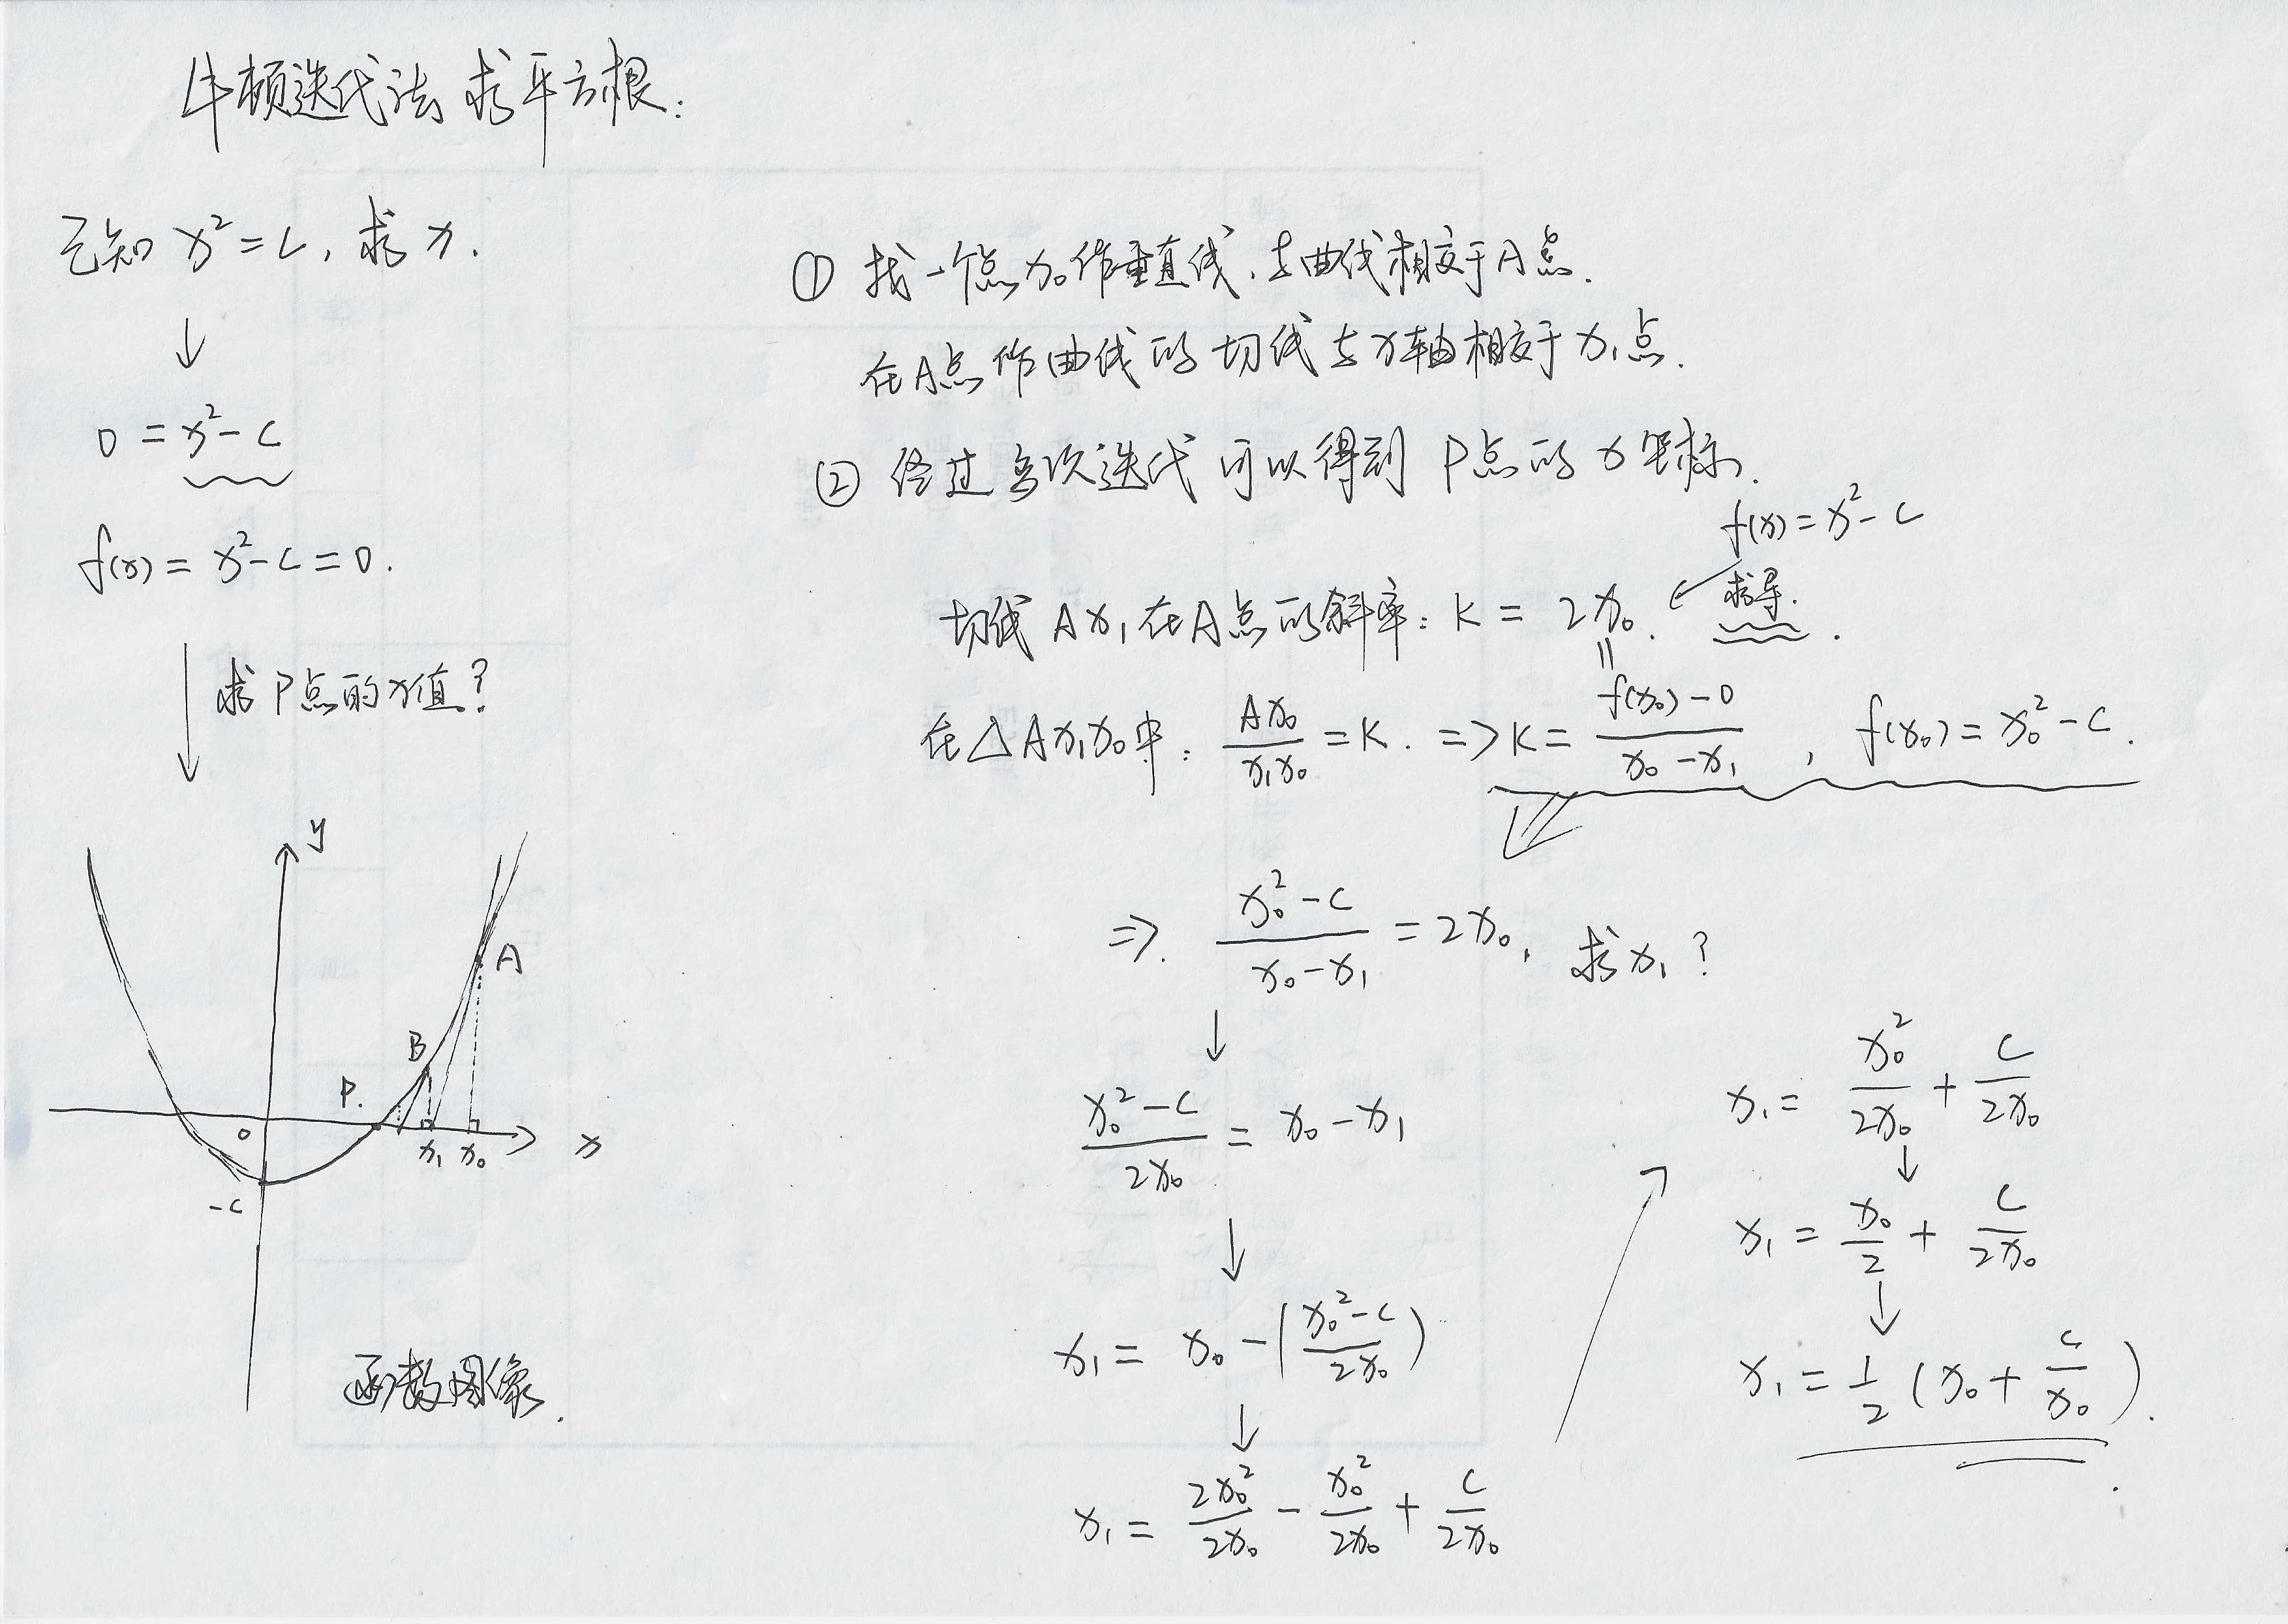 牛顿迭代法求平方根:
已知 x² = c, 求 x.
↓
0 = x² - c
f(x) = x² - c = 0.
↓ 求P点的x值?
y
A
B
P.
0
x₁ x₀ x
-c
函数图像.
① 找一个点x₀作垂直线, 与曲线相交于A点.
在A点作曲线的切线与x轴相交于x₁点.
② 经过多次迭代可以得到P点的x坐标.
f(x) = x² - c
切线Ax₁在A点的斜率: K = 2x₀. ← 求导.
在△Ax₁x₀中: Ax₀/x₁x₀ = K. => K = (f(x₀) - 0)/(x₀ - x₁), f(x₀) = x₀² - c.
=> (x₀² - c)/(x₀ - x₁) = 2x₀, 求x₁?
↓
(x₀² - c)/2x₀ = x₀ - x₁
↓
x₁ = x₀ - ((x₀² - c)/2x₀)
↓
x₁ = 2x₀²/2x₀ - x₀²/2x₀ + c/2x₀
x₁ = x₀²/2x₀ + c/2x₀
↓
x₁ = x₀/2 + c/2x₀
↓
x₁ = 1/2 (x₀ + c/x₀).